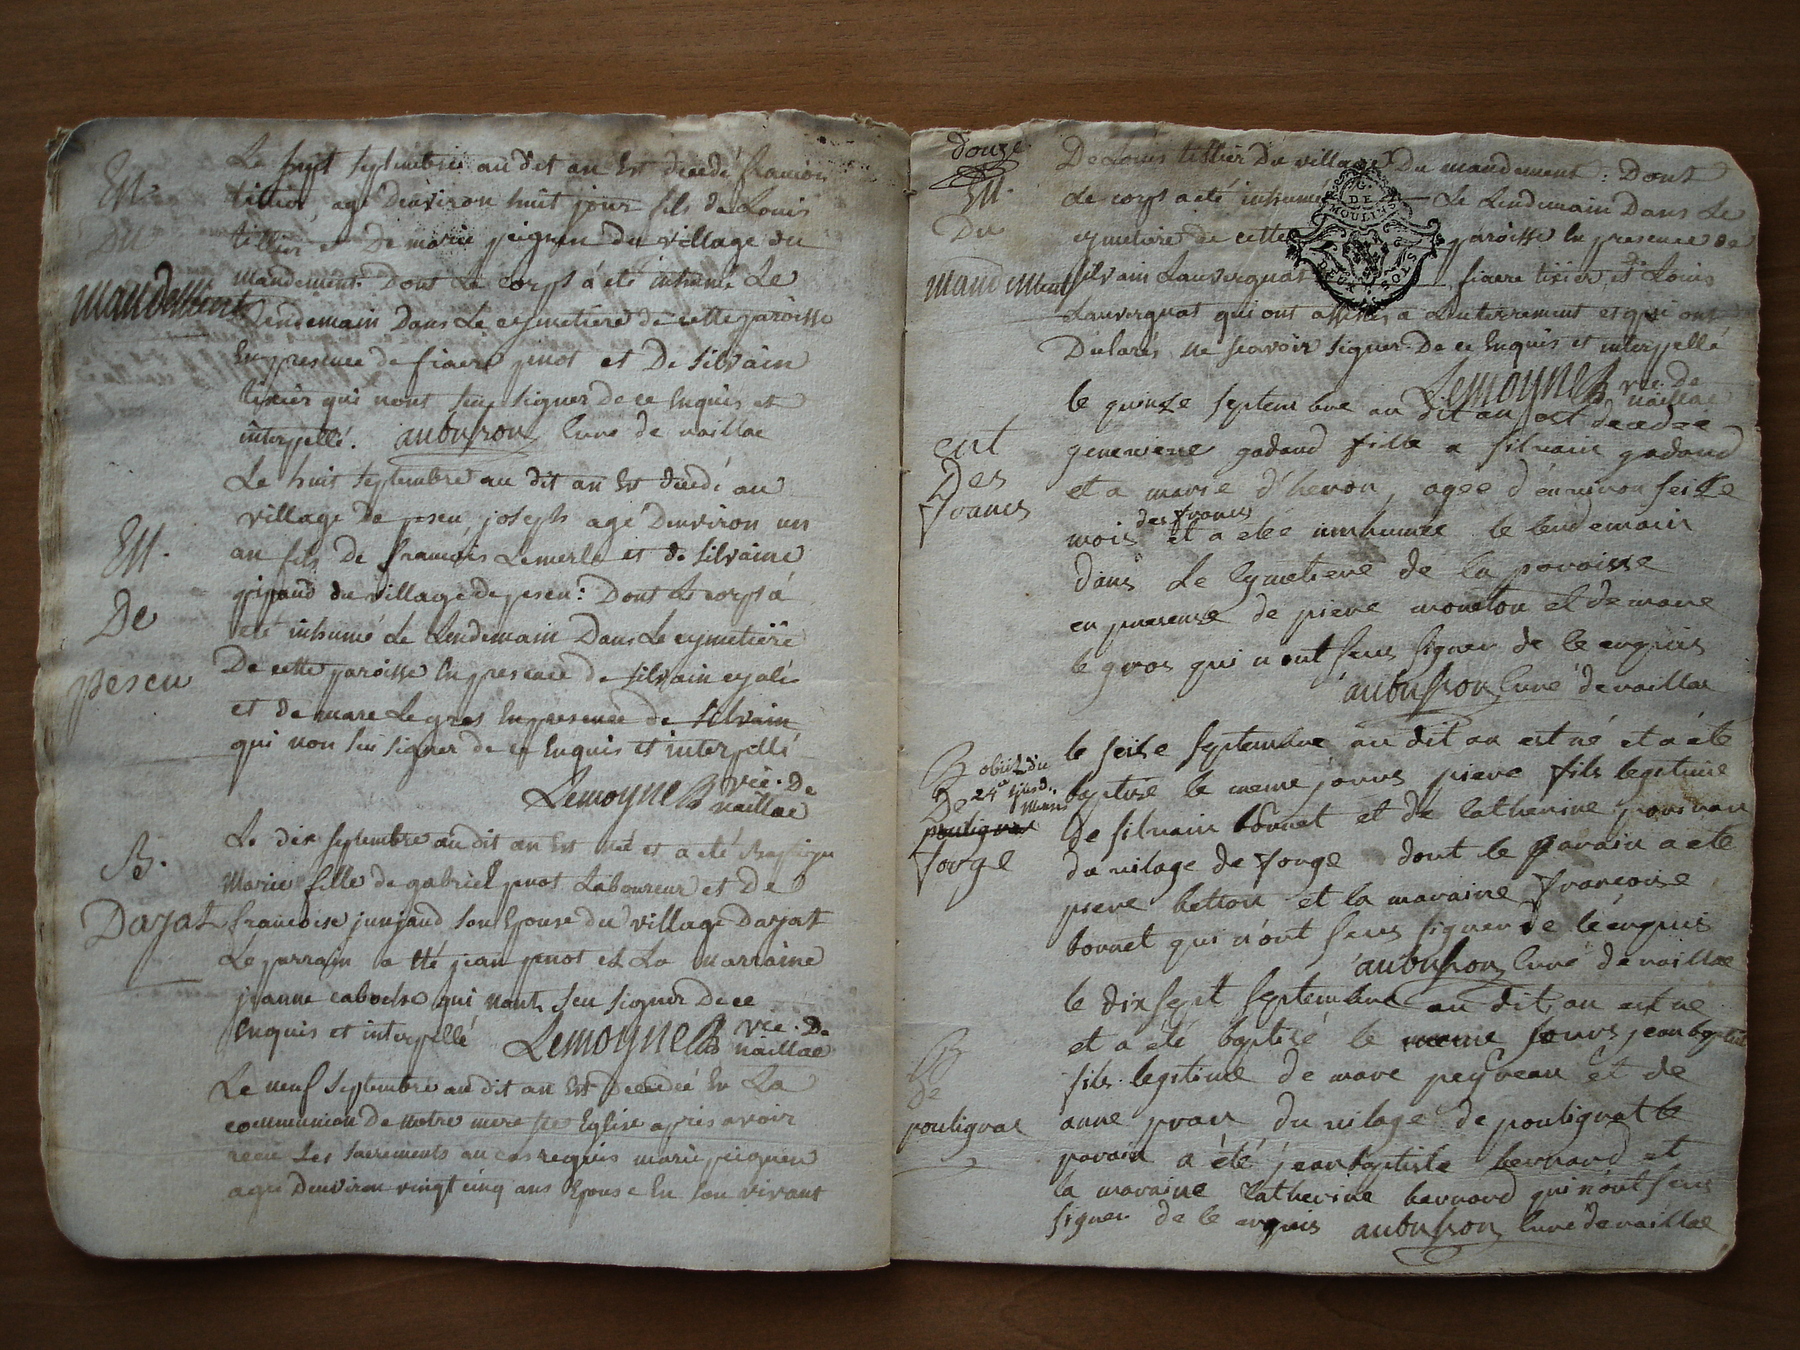 Le sept septembre au dit an Est decedé francois
Ent.
tixier, agé Denviron huit jour fils de Louis
Du
tillier et De marie peignen du village du
mandement
mandement Dont Le Corps á été inhumé Le
Lendemain Dans Le cymetiere de cette paroisse
En presence de fiacre pinot et De silvain
tixier qui nont seu signer de ce Enquis et
interpellé. aubusson Curé de naillac
Le huit septembre au dit an Est decedé au
village De peseu joseph agé Denviron un
Ent.
an fils De francois Lemerle et de silvaine
De
pipaud du village de peseu: Dont Le corps á
peseu
eté inhumé Le Lendemain Dans Le cymetiere
De cette paroisse En presence de silvain
et de marc Legros En presence de silvain
qui non seu signer de ce Enquis et interpellé
Lemoyne vic. De
naillac
Le dix septembre au dit an Est neé et a eté Baptizeé
B.
De
Marie fille de gabriel pinot Laboureur et De
Dazat
francoise junjaud son Epouse du village Dazat
Le parrain a été jean pinot et La marraine
jeanne caboche qui nont seu signer De ce
Enquis et interpellé Lemoyne vic. De
naillac
Le neuf septembre au dit an Est Decedeé En La
communion de notre mere ste Eglise apres avoir
recu Les sacrements au cas requis marie peignen
ageé Denviron vingt cinq ans Epouse En son vivant
douze
De Louis tillier Du village Du mandement: Dont
Ent.
Le corps a eté inhumé Le Lendemain Dans Le
Du
cymetiere de cette paroisse En presence de
mandement
silvain Lauvergnat fiacre tixier et De Louis
G. DE MOULINS
DEUX SOLS
Lauvergnat qui ont assistés a Lenterrement et qui ont
Déclarés ne scavoir signer De ce Enquis et interpellé
Lemoyne vic. De
naillac
le quinze septembre au dit an est decedée
ent
genevieve gadaud fille a silvain gadaud
Des
et a marie d'heron, ageé d'environ seize
francs
des francs
mois et a eté inhumée le lendemain
dans le Cymetiere de la paroisse
en presense de piere mouton et de marc
le gros qui n'ont seus signer de ce enquis
aubusson Curé de naillac
le seise septembre au dit an est né et a été
B obiit die
baptisé le meme jours piere fils legitime
De 24a ejusd. mensis
de silvain bonnet et de Catherine
poulignat
du vilage de forge dont le parain a eté
forge
piere betion et la maraine francoise
bonnet qui n'ont seus signer de ce enquis
aubusson Curé de naillac
le dix sept septembre au dit an est né
et a eté baptisé le meme jours jean baptiste
B
fils legitime de marc peyreau et de
De
poulignat
anne du vilage de poulignat le
parain a été jean baptiste bernard et
la maraine Catherine bernard qui n'ont seus
signer de ce enquis aubusson Curé de naillac